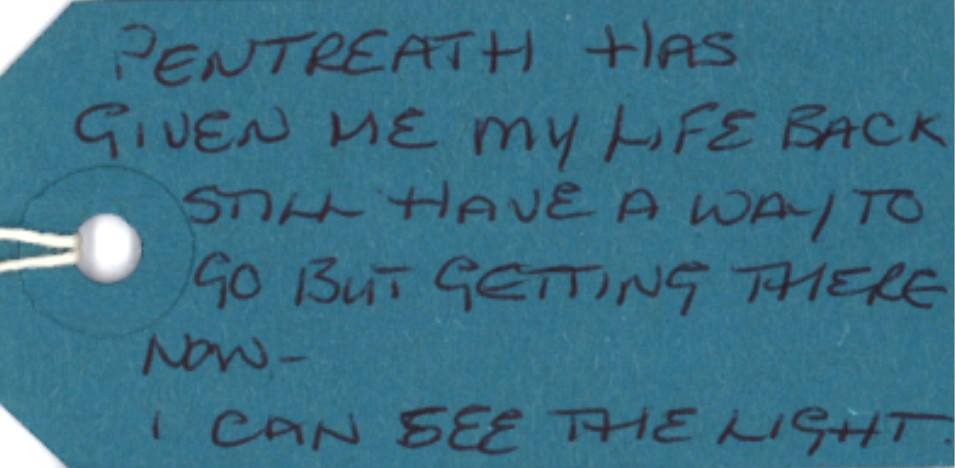 PENTREATH HAS
GIVEN ME MY LIFE BACK
STILL HAVE A WAY TO
GO BUT GETTING THERE
NOW-
I CAN SEE THE LIGHT.